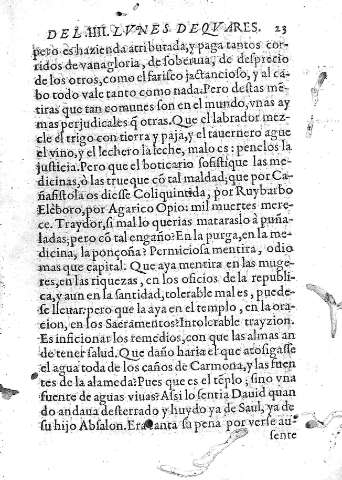 DEL IIII. LVNES DE QVARES. 23
pero es hazienda atributada, y paga tantos cor-
ridos de vanagloria, de soberuia, de desprecio
de los otros, como el fariseo jactancioso, y al ca-
bo todo vale tanto como nada. Pero destas mẽ
tiras que tan comunes son en el mundo, vnas ay
mas perjudicales q̃ otras. Que el labrador mez-
cle el trigo con tierra y paja, y el tauernero ague
el vino, y el lechero la leche, malo es: penelos la
justicia. Pero que el boticario sofistique las me-
dicinas, ò las trueque cõ tal maldad; que por Ca-
ñafistola os diesse Coliquintida, por Ruybarbo
Eleboro, por Agarico Opio: mil muertes mere-
ce. Traydor, si mal lo querias mataraslo à puña-
ladas; pero cõ tal engaño? En la purga, en la me-
dicina, la ponçoña? Perniciosa mentira, odio
mas que capital. Que aya mentira en las muge-
res, en las riquezas, en los oficios de la republi-
ca, y aun en la santidad, tolerable mal es, puede-
se lleuar; pero que la aya en el templo, en la ora-
cion, en los Sacramentos? Intolerable trayzion.
Es inficionar los remedios, con que las almas an
de tener salud. Que daño haria el que atosigasse
el agua toda de los caños de Carmona, y las fuen
tes de la alameda? Pues que es el tẽplo, sino vna
fuente de aguas viuas? Assi lo sentia Dauid quan
do andaua desterrado y huydo ya de Saul, ya de
su hijo Absalon. Era tanta su pena por verse au-
sente